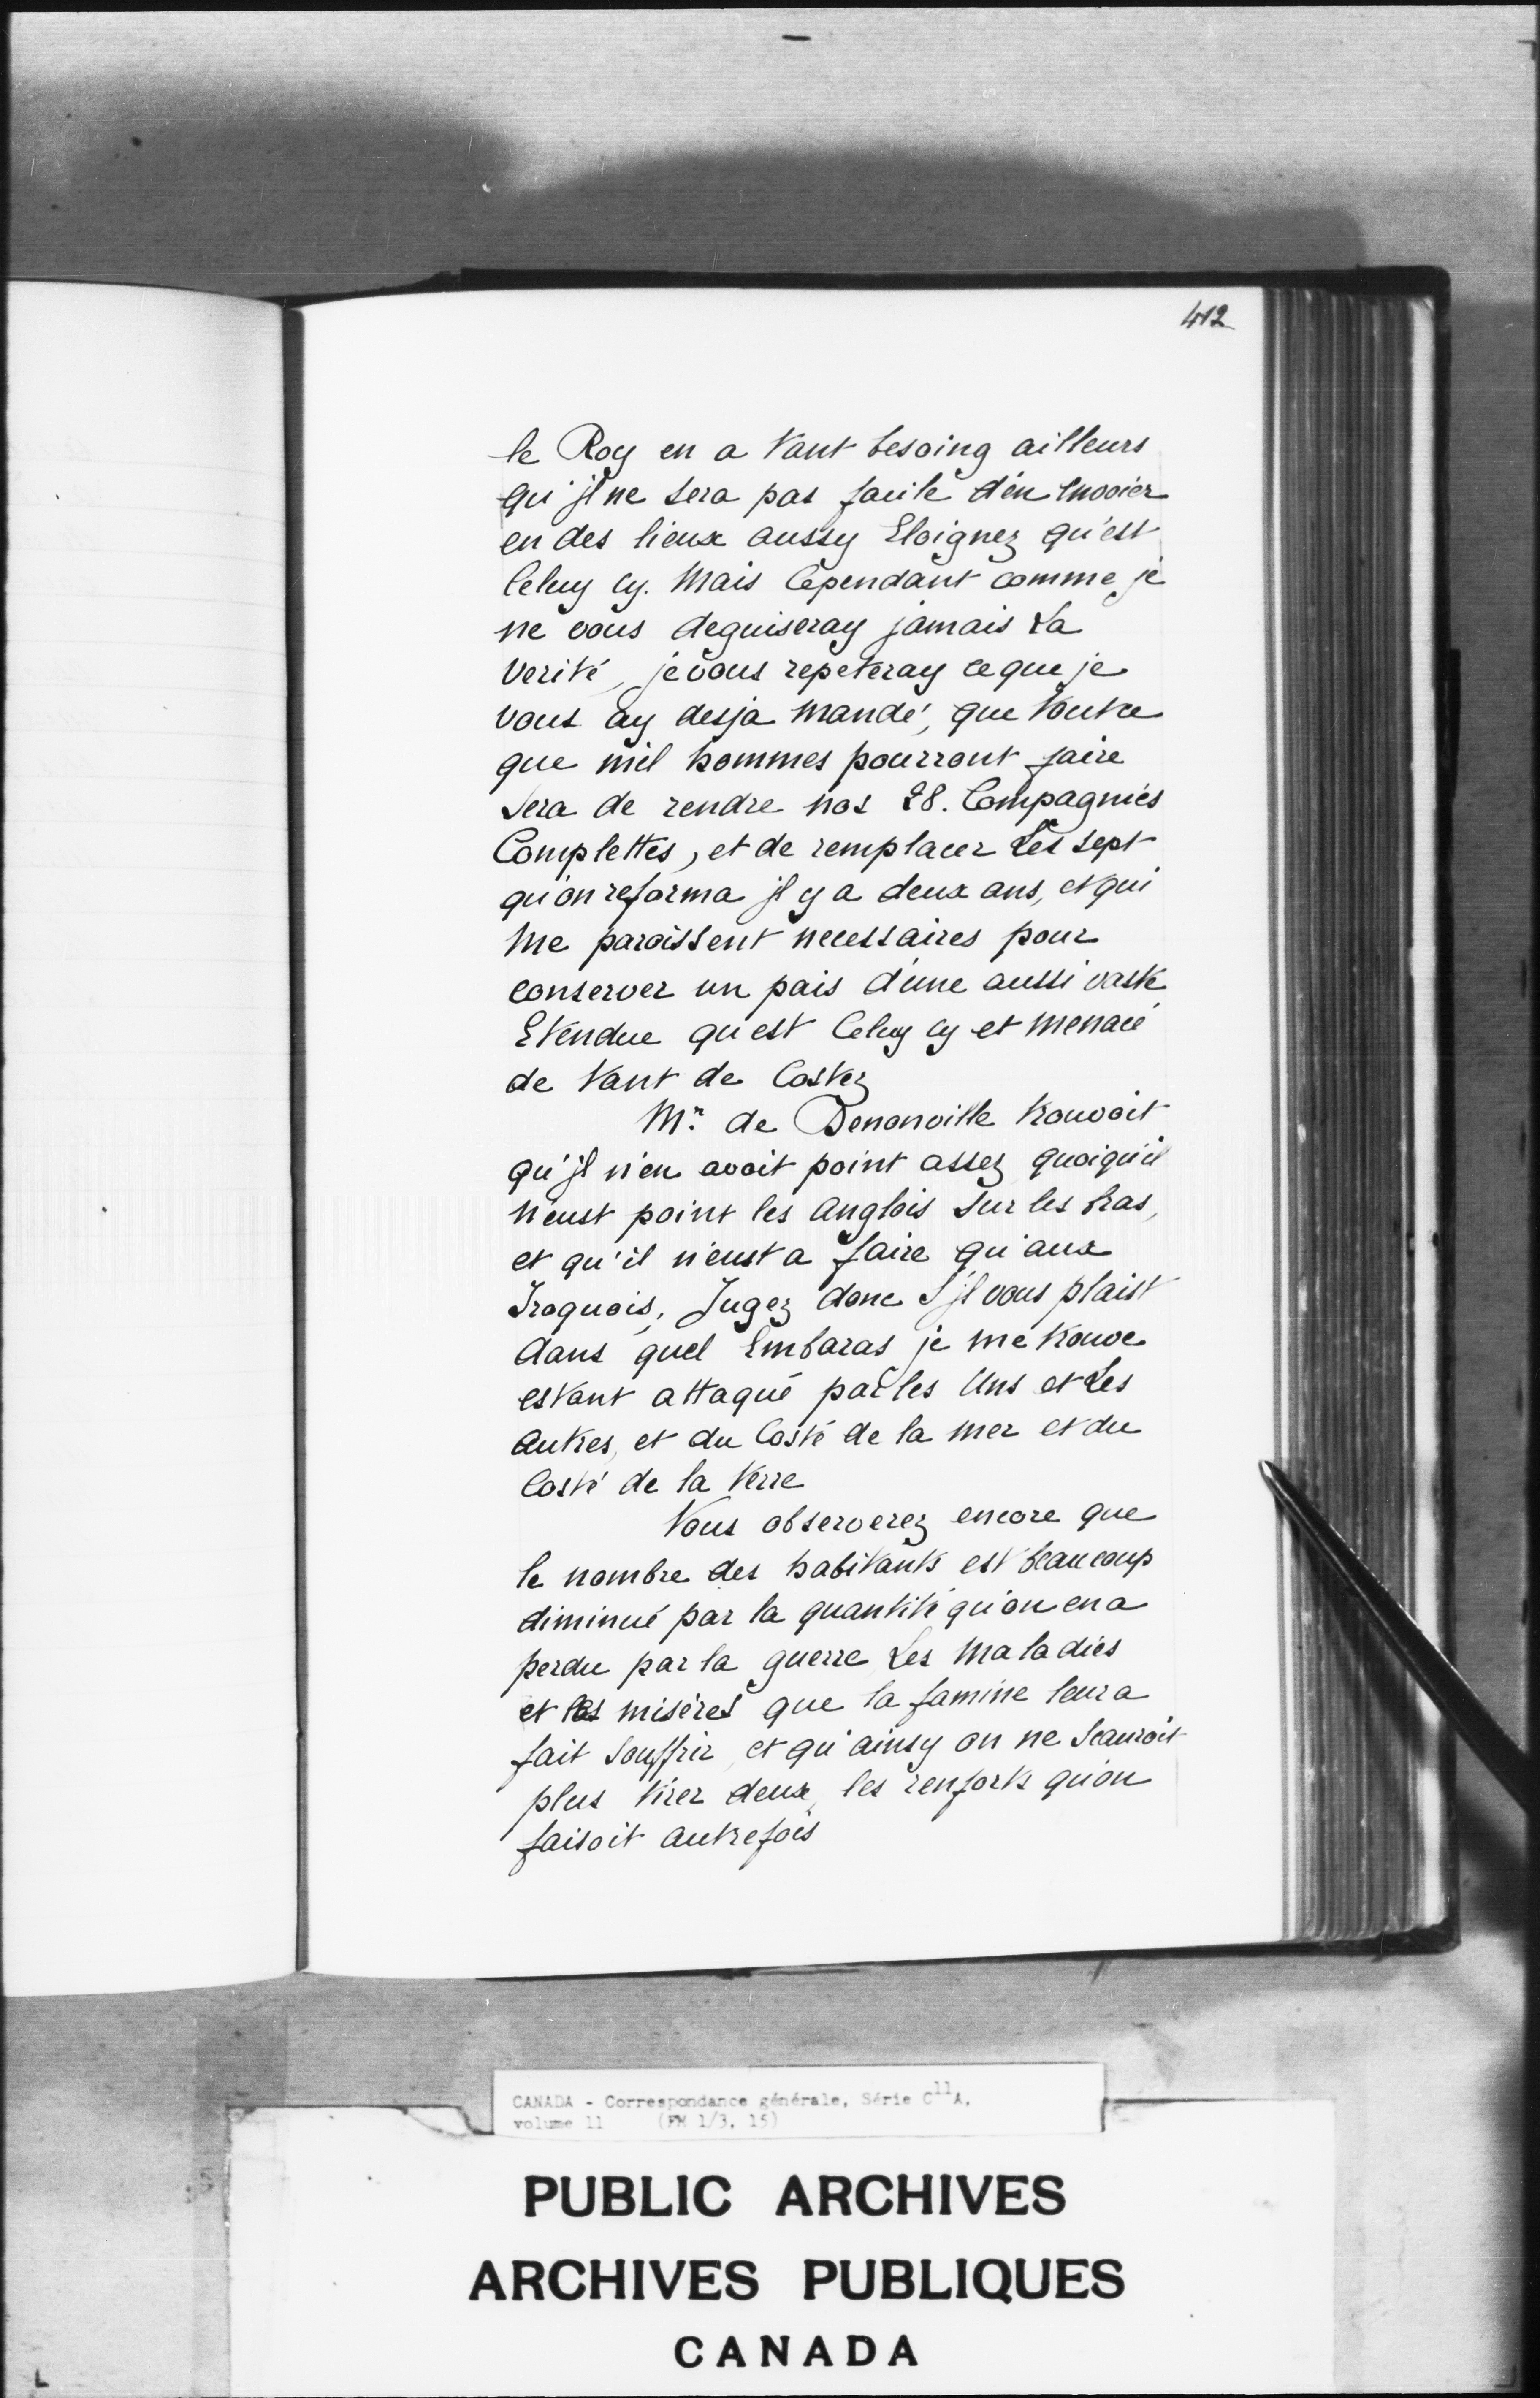 412
le Roy en a tant besoing ailleurs
qu'jl ne sera pas facile d'en envoier
en des lieux aussy Eloignez qu'est
Celuy cy. Mais Cependant comme je
ne vous deguiseray jamais La
verité, je vous repeteray ce que je
vous ay desja mandé, que tout ce
que mil hommes pourront faire
sera de rendre nos 28. Compagnies
Complettes, et de remplacer Les sept
qu'on reforma jl y a deux ans, et qui
me paroissent necessaires pour
conserver un pais d'une aussi vaste
Etendue qu'est Celuy cy et menacé
de tant de Costez
Mr. de Denonville trouvoit
qu'jl n'en avoit point assez quoiqu'il
n'eust point les anglois sur les bras,
et qu'il n'eust a faire qu'aux
Iroquois, Jugez donc s'jl vous plaist
dans quel Embaras je me trouve
estant attaqué par les Uns et Les
autres, et du Costé de la mer et du
Costé de la terre
Vous observerez encore que
le nombre des habitants est beaucoup
diminué par la quantité qu'on en a
perdu par la guerre Les maladies
et les miséres que la famine leur a
fait souffrir, et qu'ainsy on ne scauroit
plus tirer deux, les renforts qu'on
faisoit autrefois
CANADA - Correspondance générale, Série C11A,
volume 11 (FM 1/3, 15)
PUBLIC ARCHIVES
ARCHIVES PUBLIQUES
CANADA